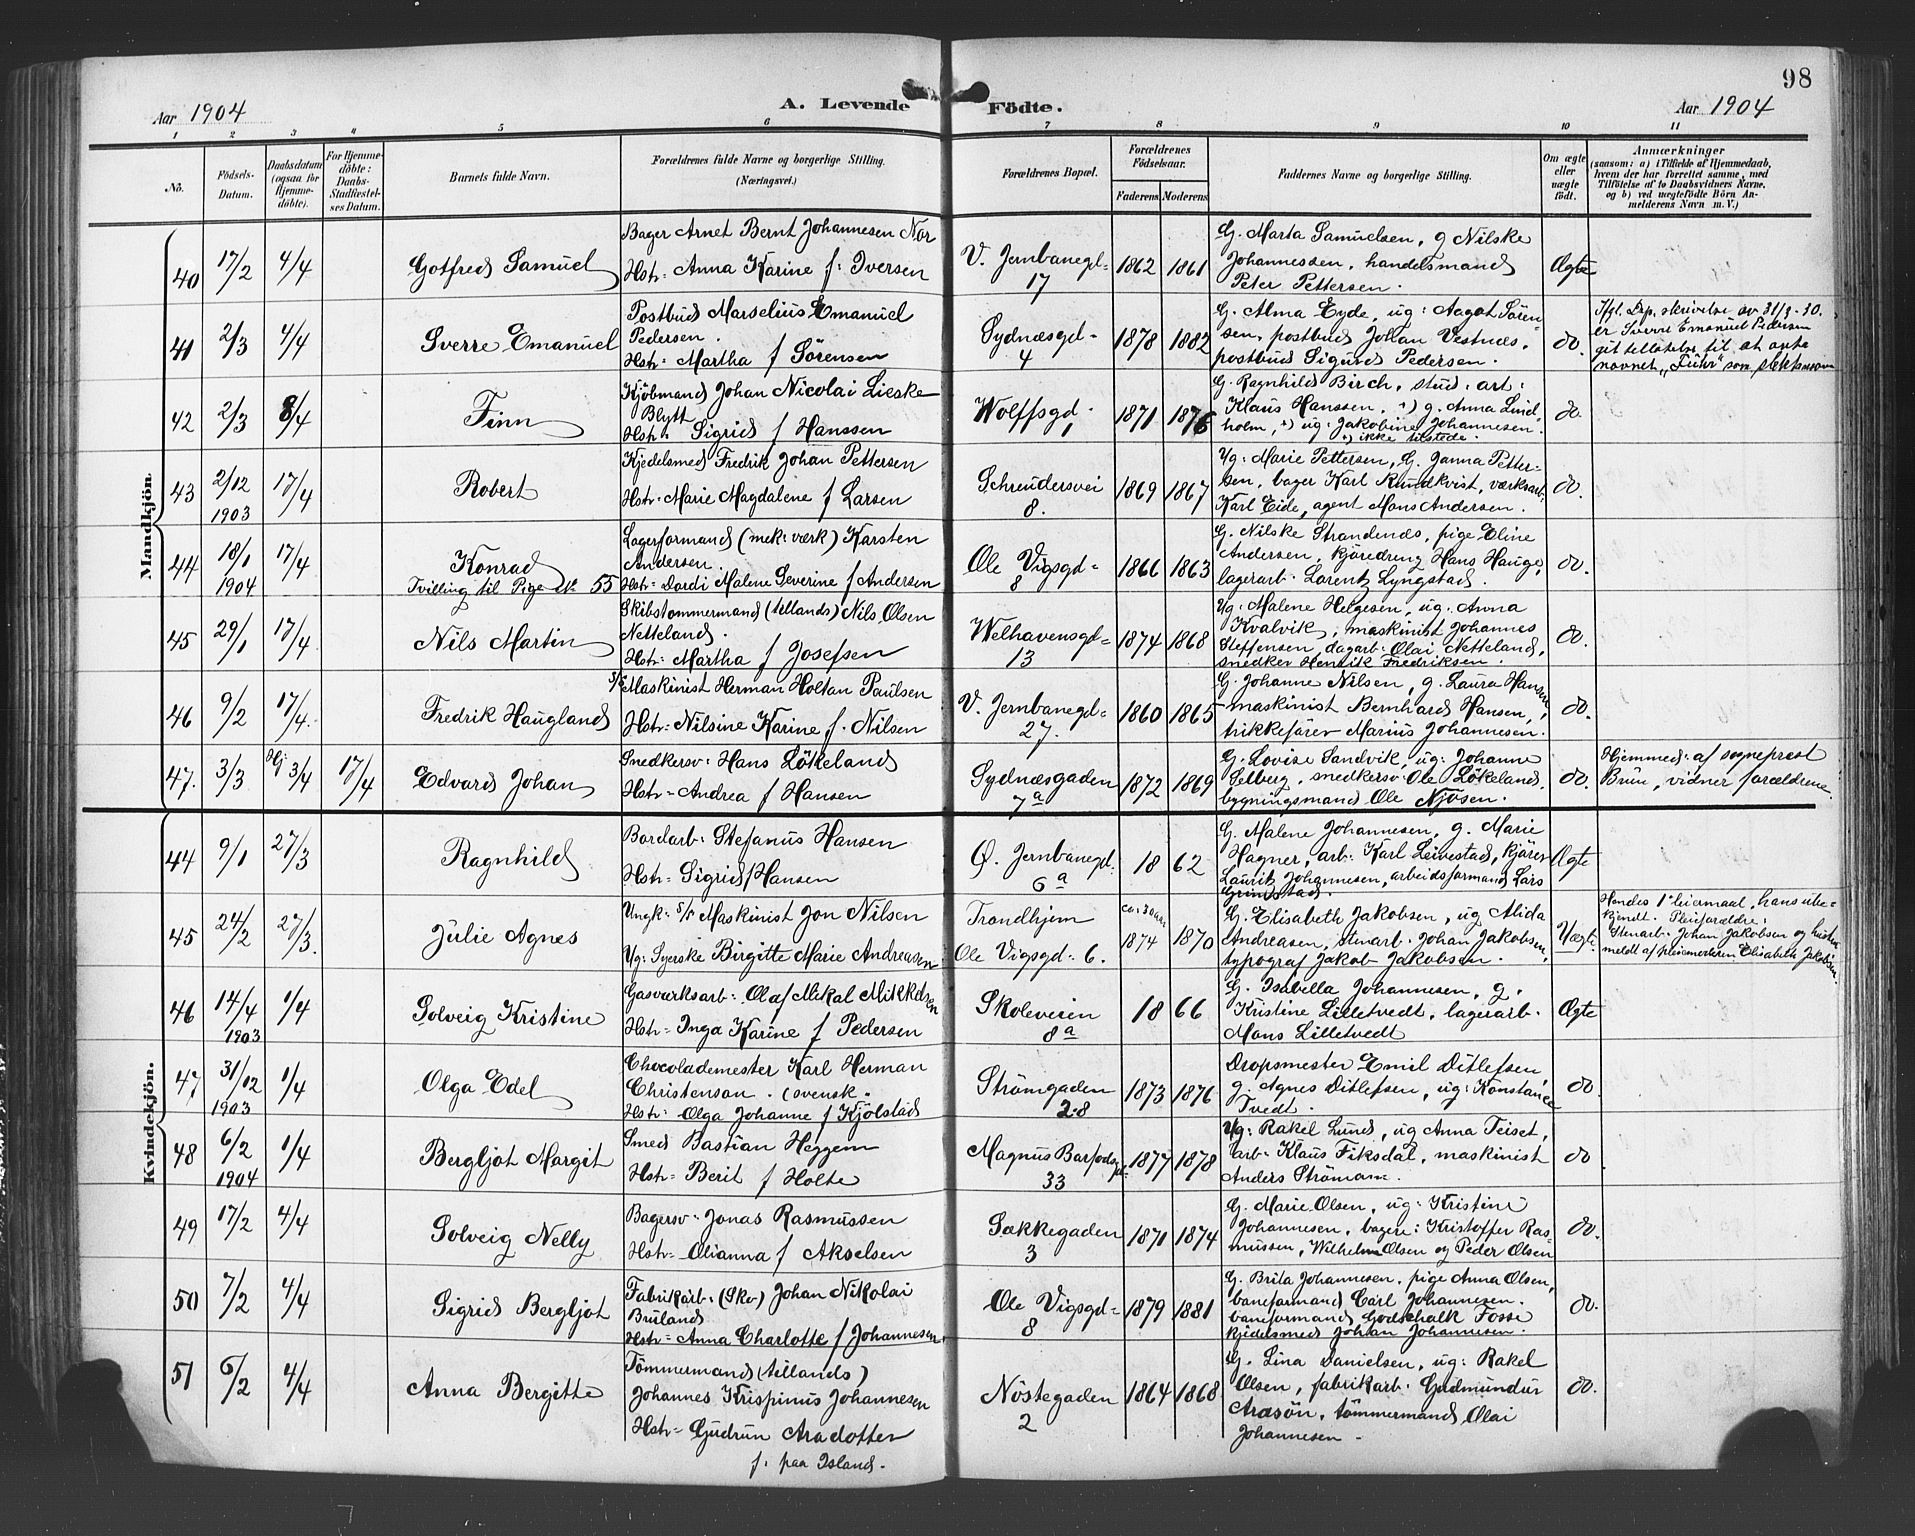 98
Aar 1904
A. Levende Födte.
Aar 1904
1 2 3 4 5 6 7 8 9 10 11
No.
Födsels-Datum.
Daabsdatum (ogsaa for Hjemme-döbte).
For Hjemme-döbte: Daabs-Stadfæstel-ses Datum.
Barnets fulde Navn.
Forældrenes fulde Navne og borgerlige Stilling.
(Næringsvei.)
Forældrenes Bopæl.
Forældrenes Födselsaar.
Faderens Moderens
Faddernes Navne og borgerlige Stilling.
Om ægte eller uægte födt.
Anmærkninger
(saasom: a) i Tilfælde af Hjemmedaab, hvem der har forrettet samme, med Tilföielse af to Daabsvidners Navne, og b) ved uægtefödte Börn Anmelderens Navn m. V.)
Mandkjön.
40 17/2 4/4 Gotfred Samuel
Bager Arnet Bernt Johannesen Nor
Hstr: Anna Karine f: Iversen
V. Jernbanegd= 17
1862 1861
G. Marta Samuelsen, g Nilske
Johannessen, handelsmand
Peter Pettersen.
Ægte
41 2/3 4/4 Sverre Emanuel
Postbud Marselius Emanuel
Pedersen.
Hstr: Martha f Sörensen
Sydnæsgd= 4
1878 1882
G. Alma Eyde, ug: Aagot Sören-
sen, postbud Johan Vestnæs,
postbud Sigurd Pedersen.
do.
Ifgl. Dep. skrivelse av 31/3-30.
er Sverre Emanuel Pedersen
git tilladelse til at anta
navnet "Führ" som slektsnavn
42 2/3 8/4 Finn
Kjöbmand Johan Nicolai Lieske
Blytt
Hstr: Sigrid f Hanssen
Wolffsgd. 1
1871 1876
G. Ragnhild Birch, stud. art:
Klaus Hanssen, +) g. Anna Lind
holm, +) ug: Jakobine Johannesen.
+) ikke tilstede.
do.
43 2/12 1903 17/4 Robert
Kjedelsmed Fredrik Johan Pettersen
Hstr: Marie Magdalene f Larsen
Schreudersvei 8.
1869 1867
Ug: Marie Pettersen, G. Janna Petter-
sen, bager Karl Rundkvist, værksarb.
Karl Eide, agent Mons Andersen.
do.
44 18/1 1904 17/4 Konrad
Tvilling til Pige No 55
Lagerformand (mek: værk) Karsten
Andersen.
Hstr: Dordi Malene Severine f Andersen
Ole Vigsgd= 8
1866 1863
G. Nilske Strandend, pige Eline
Andersen, kjöredreng Hans Hauge,
lagerarb. Lorentz Lyngstad.
do.
45 29/1 17/4 Nils Martin
Skibstömmermand (tellands) Nils Olsen
Netteland.
Hstr: Martha f Josefsen
Welhavensgd= 13
1874 1868
Ug: Malene Helgesen, ug: Anna
Kvalvik, maskinist Johannes
Steffensen, dagarb: Olai Netteland,
snedker Henrik Fredriksen.
do.
46 9/2 17/4 Fredrik Haugland
S/S Maskinist Herman Holtan Paulsen
Hstr: Nilsine Karine f. Nilsen
V. Jernbanegd= 27.
1860 1865
G. Johanne Nilsen, g. Laura Hansen
maskinist Bernhard Hansen,
trikkefører Marius Johannesen.
do.
47. 3/3 Hj 3/4 17/4 Edvard Johan
Snedkersv: Hans Lökeland
Hstr= Andrea f Hansen
Sydnæsgaden 7a
1872 1869
G. Lovise Sandvik, ug: Johanne
Selberg, snedkersv: Ole Lökeland,
bygningsmand Ole Njösen.
do.
Hjemmed: af sogneprest
Brun, vidner forældrene.
Kvindekjön.
44 9/1 27/3 Ragnhild
Bordarb: Stefanus Hansen
Hstr: Sigrid f Hansen
Ø. Jernbanegd: 6a
18 62
G. Malene Johannesen, g. Marie
Hagner, arb: Karl Leivestad, kjörer
Lauritz Johannesen, arbeidsformand Lars
Grindstad.
Ægte
45 24/2 27/3. Julie Agnes
Ungk: S/S Maskinist Jon Nilsen
Ug: Syerske Birgitte Marie Andreasen
Trondhjem
Ole Vigsgd: 6.
ca: 30 aar
1874 1870
G. Elisabeth Jakobsen, ug Alida
Andreasen, stenarb. Johan Jakobsen,
typograf Jakob Jakobsen.
Uægte.
Hendes 1ste leiermaal, hans ube-
kjendt. Pleieforældre:
Stenarb: Johan Jakobsen og hustru
meldt af pleiemoderen Elisabeth Jakobsen
46 14/4 1903 1/4 Solveig Kristine
Gasværksarb: Olaf Mikal Mikkelsen
Hstr= Inga Karine f Pedersen
Skoleveien 8a
18 66
G. Isabella Johannesen, g.
Kristine Lilletvedt, lagerarb.
Mons Lilletvedt
Ægte
47 31/12 1903 1/4 Olga Edel
Chocolademester Karl Herman
Christenson. (svensk.
Hstr: Olga Johanne f Kjölstad
Strömgaden 28
1873 1876
Dropsmester Emil Ditlefsen,
g. Agnes Ditlefsen, ug: Konstance
Tvedt.
do
48 6/2 1904 1/4 Bergljot Margit
Smed Bastian Heggem
Hstr= Berit f Holte
Magnus Barfodsgd: 33
1877 1878
Ug: Rakel Lund, ug Anna Teiset,
arb: Klaus Fiksdal, maskinist
Anders Strömam.
do
49 17/2 4/4 Solveig Nelly
Bagersv: Jonas Rasmussen
Hstr= Olianna f Akselsen
Sækkegaden 3
1871 1874
G. Marie Olsen, ug: Kristine
Johannesen, bagere: Kristoffer Ras-
mussen, Wilhelm Olsen og Peder Olsen
do.
50 7/2 4/4 Sigrid Bergljot
Fabrikarb: (Sko) Johan Nikolai
Bruland
Hstr= Anna Charlotte f Johannesen
Ole Vigsgd= 8
1879 1881
G. Brita Johannesen, pige Anna Olsen,
baneformand Carl Johannesen.
baneformand Godtschalk Fosse
kjedelsmed Johan Johannesen.
do.
51 6/2 4/4 Anna Bergitte
Tömmermand (tellands)
Johannes Krispinus Johannesen
Hstr= Gudrun Aradotter
f. paa Island.
Nöstegaden 2
1864 1868
G. Lina Danielsen, ug: Rakel
Olsen, fabrikarb. Gudmundur
Arasön, tömmermand Olai
Johannesen.
do.